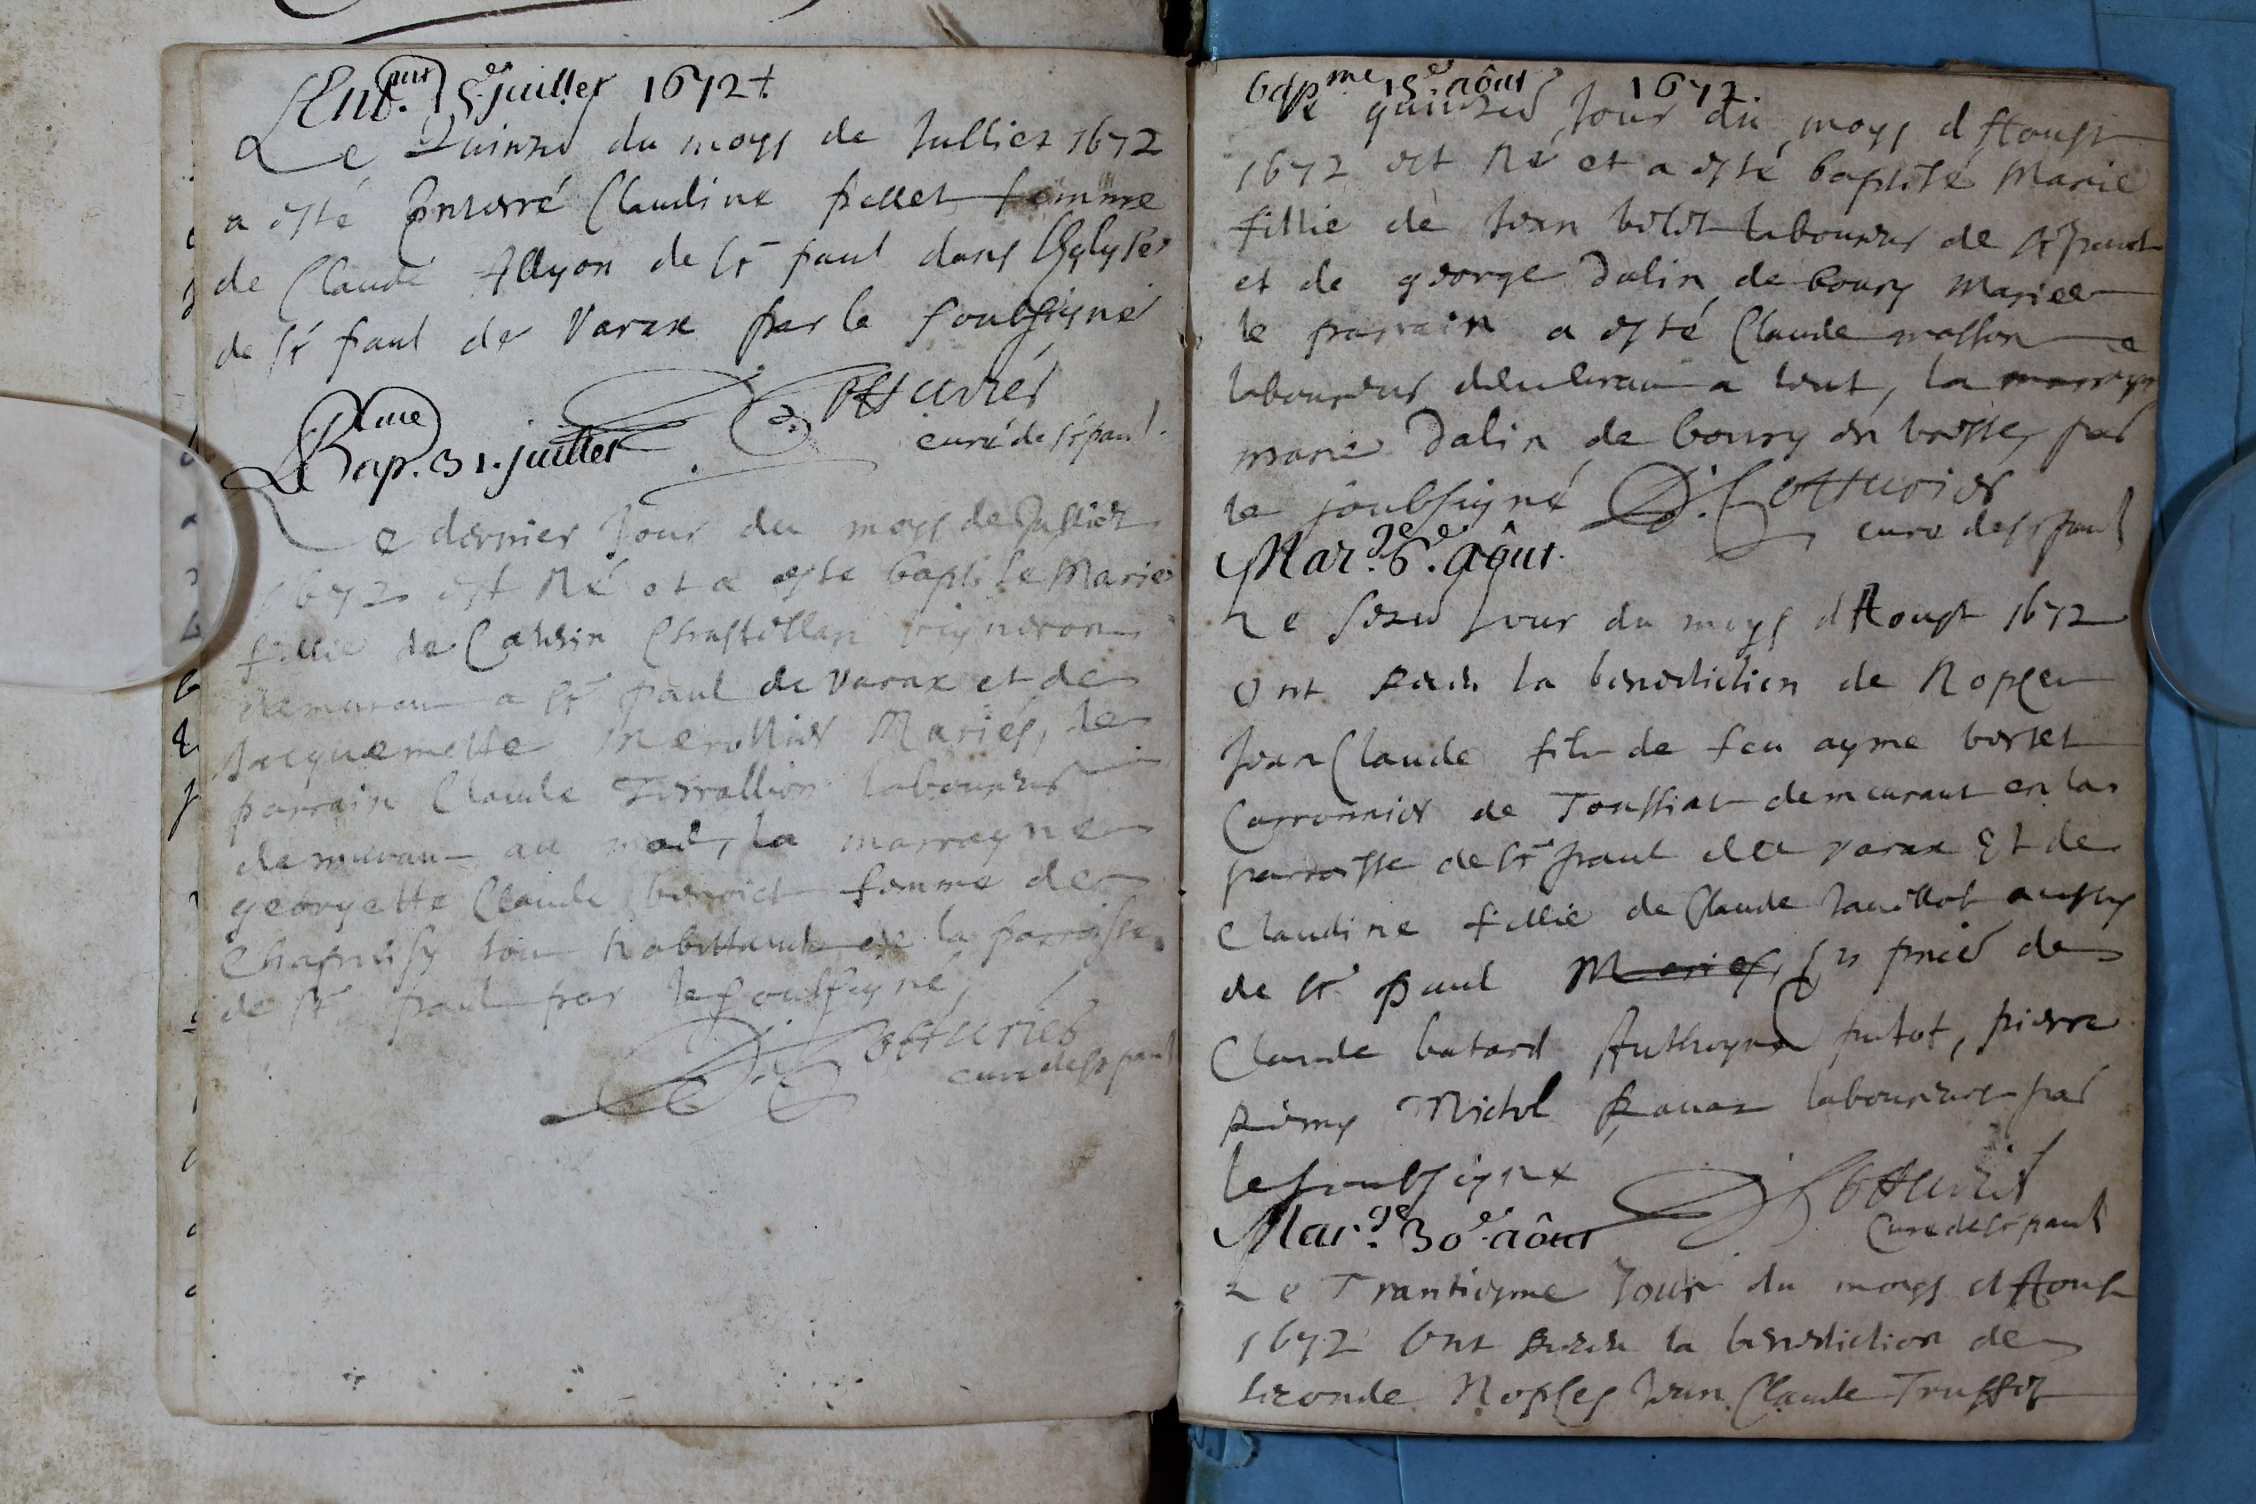 Ent.mt 15e juillet 1672 +
Le Quinze du moys de Jullier 1672
a esté Enterré Claudine pellet femme
de Claude Allyon de St paul dans l'Eglyse
de St paul de Varax par le soubsigné
D. Cotturier
curé de St paul.
Bap.me 31. juillet
Le dernier Jour du moys de Jullier
1672 est Né et a esté baptisé Marie
fillie de Chastillan vigneron
demurant a St paul de Varax et de
Jacquemette Mariés, le
parrain Claude Terrallion laboureur
demurant au la marrayne
georgette Claude benoict femme de
Chapuisy tous habittants de la parroisse
de St paul par le soubsigné,
D. Cotturier
curé de St paul
bap.me 15e août 1672.
Le quinze Jour du moys d'Aoust
1672 est Né et a esté baptisé Marie
fillie de Jean laboureur de St paul
et de george Dalin de bourg Mariee
le parrain a esté Claude masson
laboureur demeurant a la marrayne
marie Dalin de bourg en bresse, par
le soubsigné D. Cotturier
curé de St paul
Mar.ge 6e août.
Le seze Jour du moys d'Aoust 1672
Ont la benediction de Nopces
Jean Claude fils de feu ayme
Carronnier de Toussiat demeurant en la
parroisse de St paul de Varax Et de
Claudine fillie de Claude aussy
de St paul Mariés, En de
Claude batard Anthoyne putot, pierre
Michel laboureurs par
le soubsigné
D. Cotturier
Curé de St paul
Mar.ge 30e août
Le Trantiesme Jour du moys d'Aoust
1672 Ont la benediction de
seconde Nopces Jean Claude